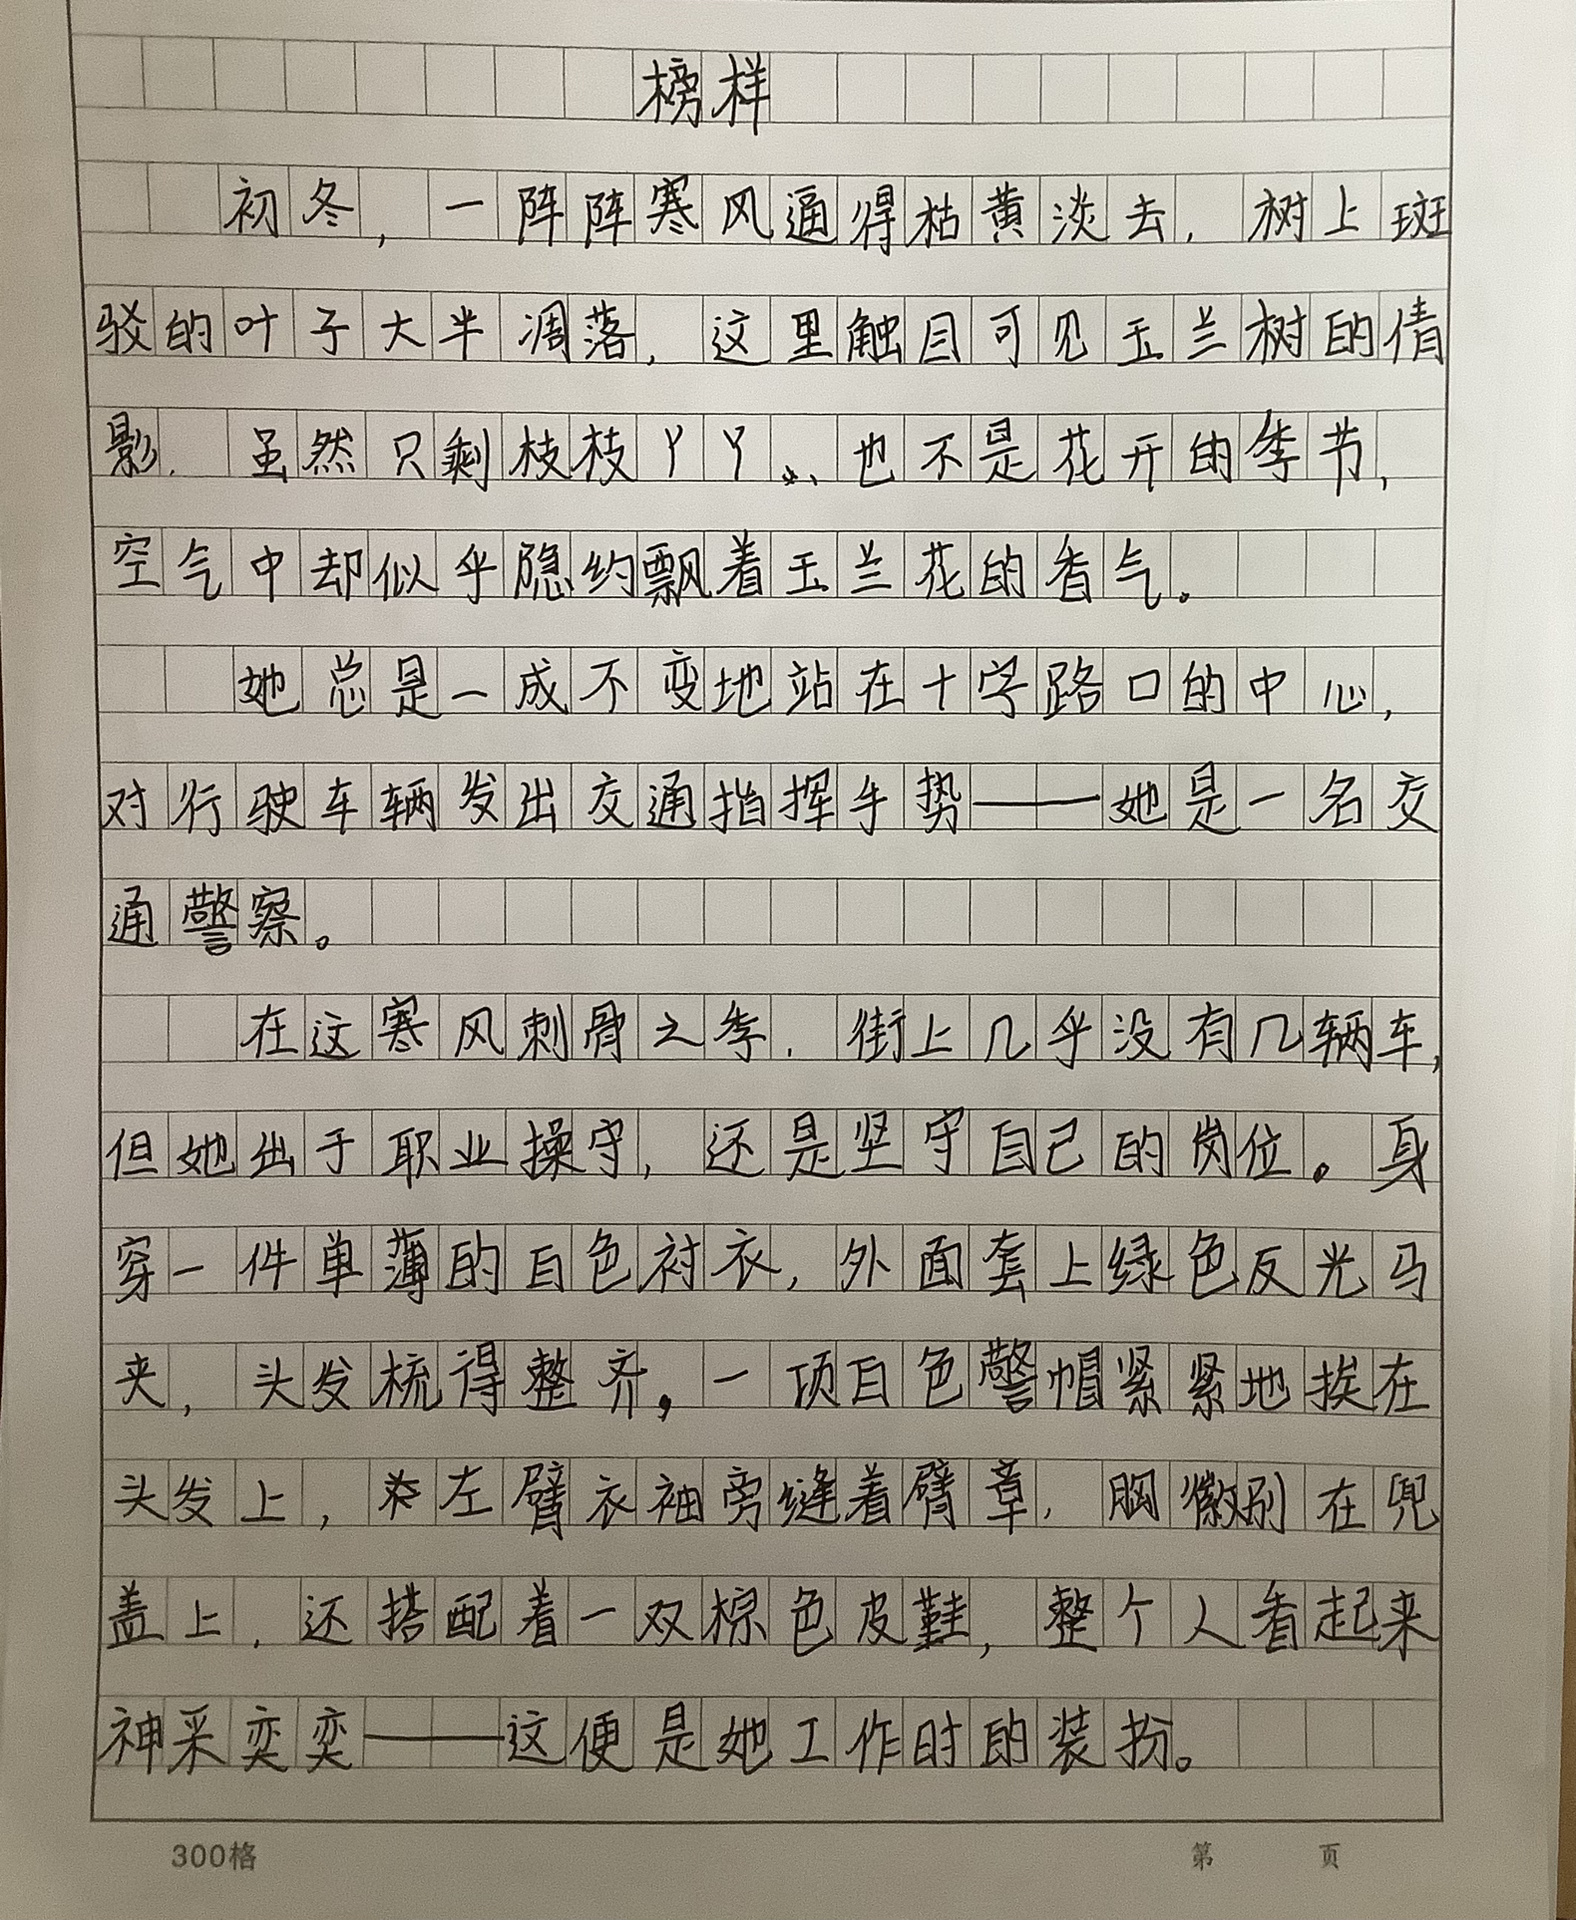 榜样
初冬，一阵阵寒风逼得枯黄淡去，树上斑
驳的叶子大半凋落，这里触目可见玉兰树的倩
影，虽然只剩枝枝丫丫，也不是花开的季节，
空气中却似乎隐约飘着玉兰花的香气。
她总是一成不变地站在十字路口的中心，
对行驶车辆发出交通指挥手势——她是一名交
通警察。
在这寒风刺骨之季，街上几乎没有几辆车，
但她出于职业操守，还是坚守自己的岗位。身
穿一件单薄的白色衬衣，外面套上绿色反光马
夹，头发梳得整齐，一顶白色警帽紧紧地挨在
头发上，左臂衣袖旁缝着臂章，胸徽别在兜
盖上，还搭配着一双棕色皮鞋，整个人看起来
神采奕奕——这便是她工作时的装扮。
300格 第 页